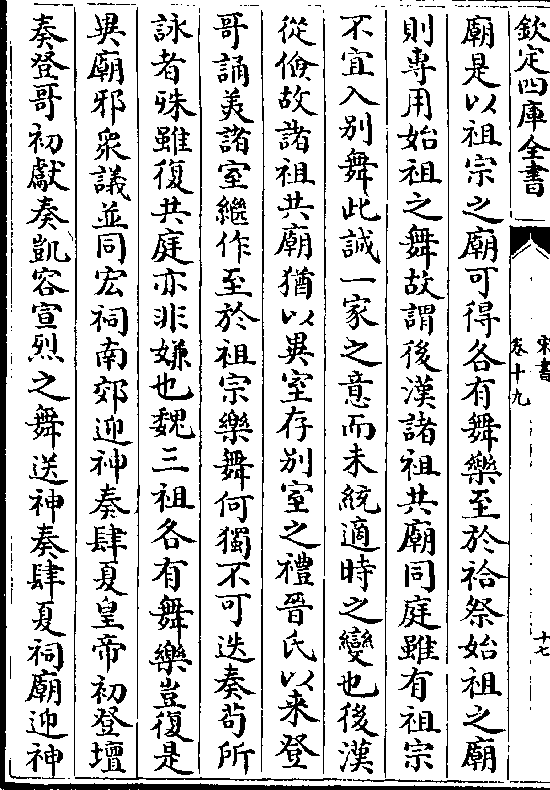 欽定四庫全書
宋書
卷十九
十七
廟是以祖宗之廟可得各有舞樂至於祫祭始祖之廟
則專用始祖之舞故謂後漢諸祖共廟同庭雖有祖宗
不宜入別舞此誠一家之意而未統適時之變也後漢
從儉故諸祖共廟猶以異室存別室之禮晉氏以來登
哥誦美諸室繼作至於祖宗樂舞何獨不可迭奏茍所
詠者殊雖復共庭亦非嫌也魏三祖各有舞樂豈復是
異廟邪衆議並同宏祠南郊迎神奏肆夏皇帝初登壇
奏登哥初獻奏凱容宣烈之舞送神奏肆夏祠廟迎神